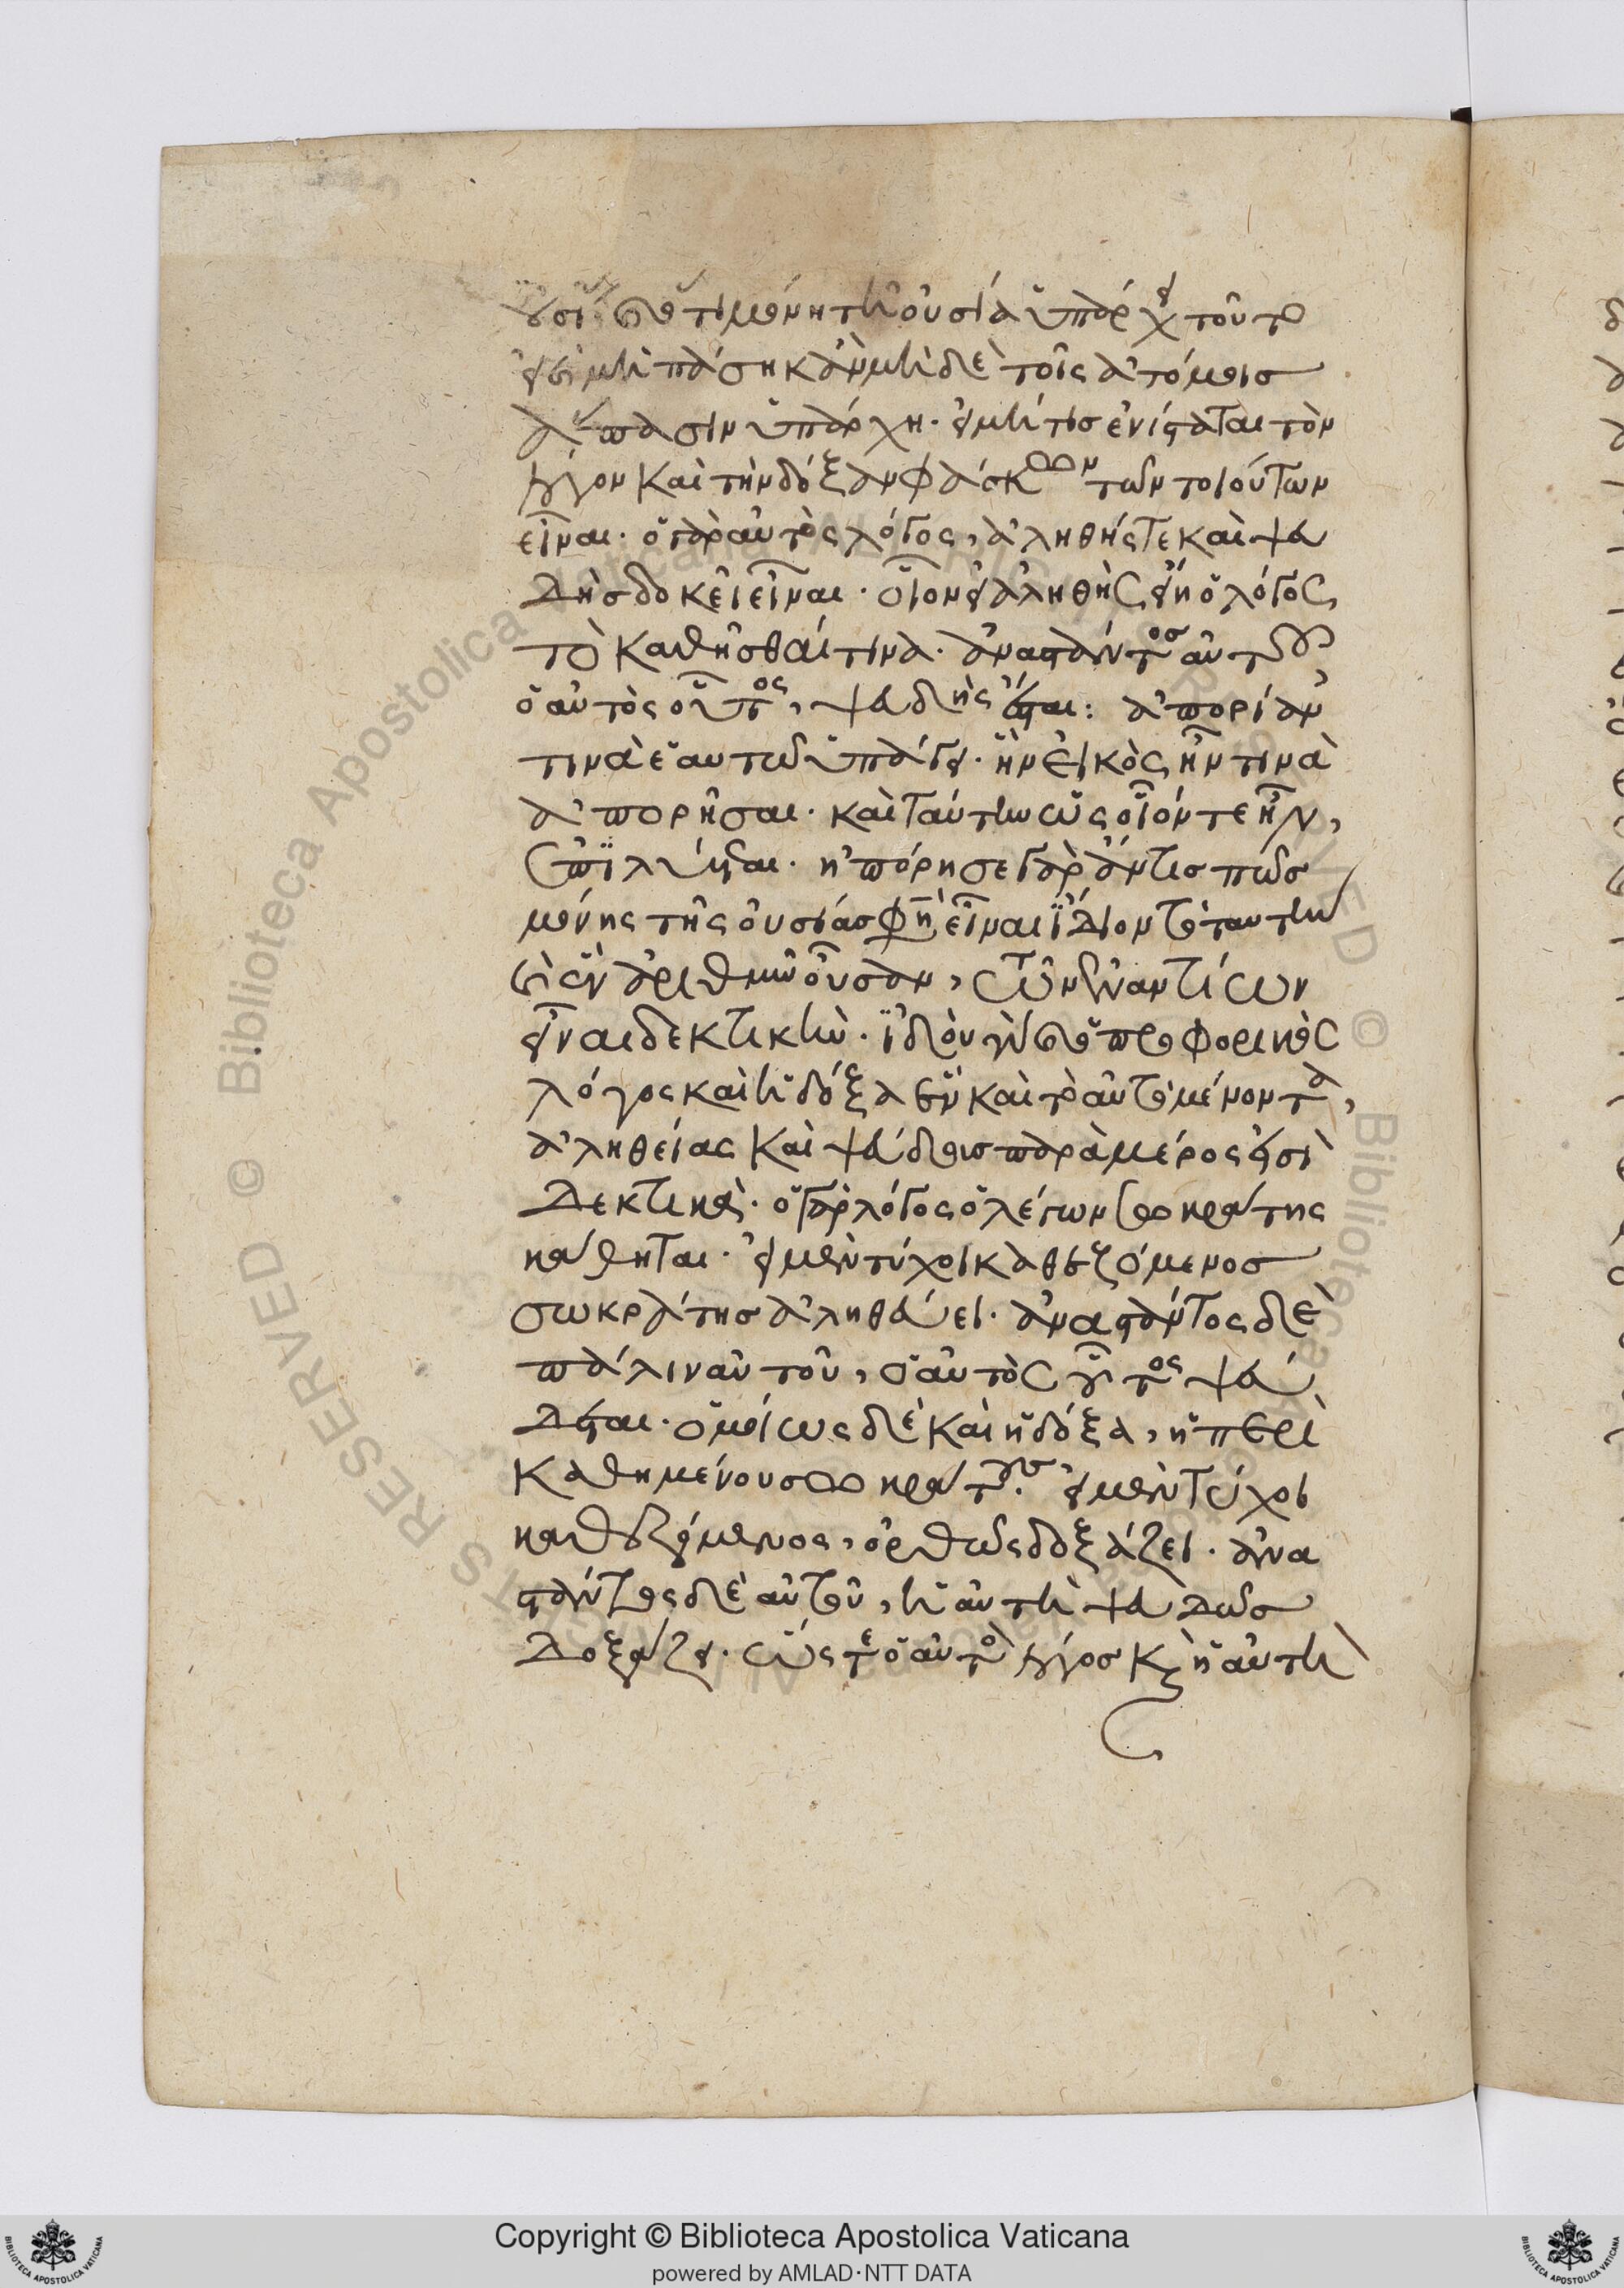 οὐσίας ὅτι μόνη τῇ οὐσία ὑπάρχει τοῦτο
εἰ καὶ μὴ πάση κἂν μὴ δὲ τοῖς ἀτόμοις
ἅπασιν ὑπάρχη. εἰ μή τις ἐνίσταται τὸν
λόγον καὶ τὴν δόξαν φάσκων τῶν τοιούτων
εἶναι. ὁ γὰρ αὐτὸς λόγος, ἀληθής τε καὶ ψευ
δὴς δοκεῖ εἶναι. οἷον εἰ ἀληθὴς εἴη ὁ λόγος
τὸ καθῆσθαί τινα. ἀναστάντος αὐτοῦ
ὁ αὐτὸς οὗτος, ψευδὴς ἔσται: ἀπορίαν
τινὰ ἑαυτῶ ὑπάγει. ἣν εἰκὸς ἦν τινὰ
ἀπορῆσαι. καὶ ταύτην ὡς οἷόν τε ἦν,
ἐπιλύεται. ἠπόρησε γὰρ ἄν τις πῶς
μόνης τῆς οὐσίας φησὶ εἶναι ἴδιον τὸ ταυτὴν
καὶ ἓν ἀριθμῶ οὖσαν, τῶν ἐναντίων
εἶναι δεκτικήν. ἰδοὺ γὰρ ὁ προφορικὸς
λόγος καὶ ἡ δόξα ἓν καὶ τὸ αὐτὸ μένοντα,
ἀληθείας καὶ ψεύδους παρὰ μέρος ἐστὶ
δεκτικά. ὁ γὰρ λόγος ὁ λέγων σωκράτης
κάθηται. εἰ μὲν τύχοι καθεζόμενος
σωκράτης ἀληθεύει. ἀναστάντος δὲ
πάλιν αὐτοῦ, ὁ αὐτὸς οὗτος ψεύ
δεται. ὁμοίως δὲ καὶ ἡ δόξα, ἡ περὶ
καθημένου σωκράτους. εἰ μὲν τύχοι
καθεζόμενος, ὀρθῶς δοξάζει. ἀνα
στάντος δὲ αὐτοῦ, ἡ αὐτὴ ψευδῶς
δοξάζει. ὥστε ὁ αὐτὸς λόγος καὶ ἡ αὐτὴ
Copyright © Biblioteca Apostolica Vaticana
powered by AMLAD·NTT DATA